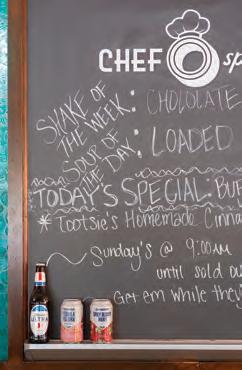 CHEF sp
SHAKE OF
THE WEEK: CHOCOLATE
SOUP OF
THE DAY: LOADED
TODAY'S SPECIAL: BUF
* Tootsie's Homemade Cinna
Sunday's @ 9:00AM
until sold ou
Get em while they'
ULTRA